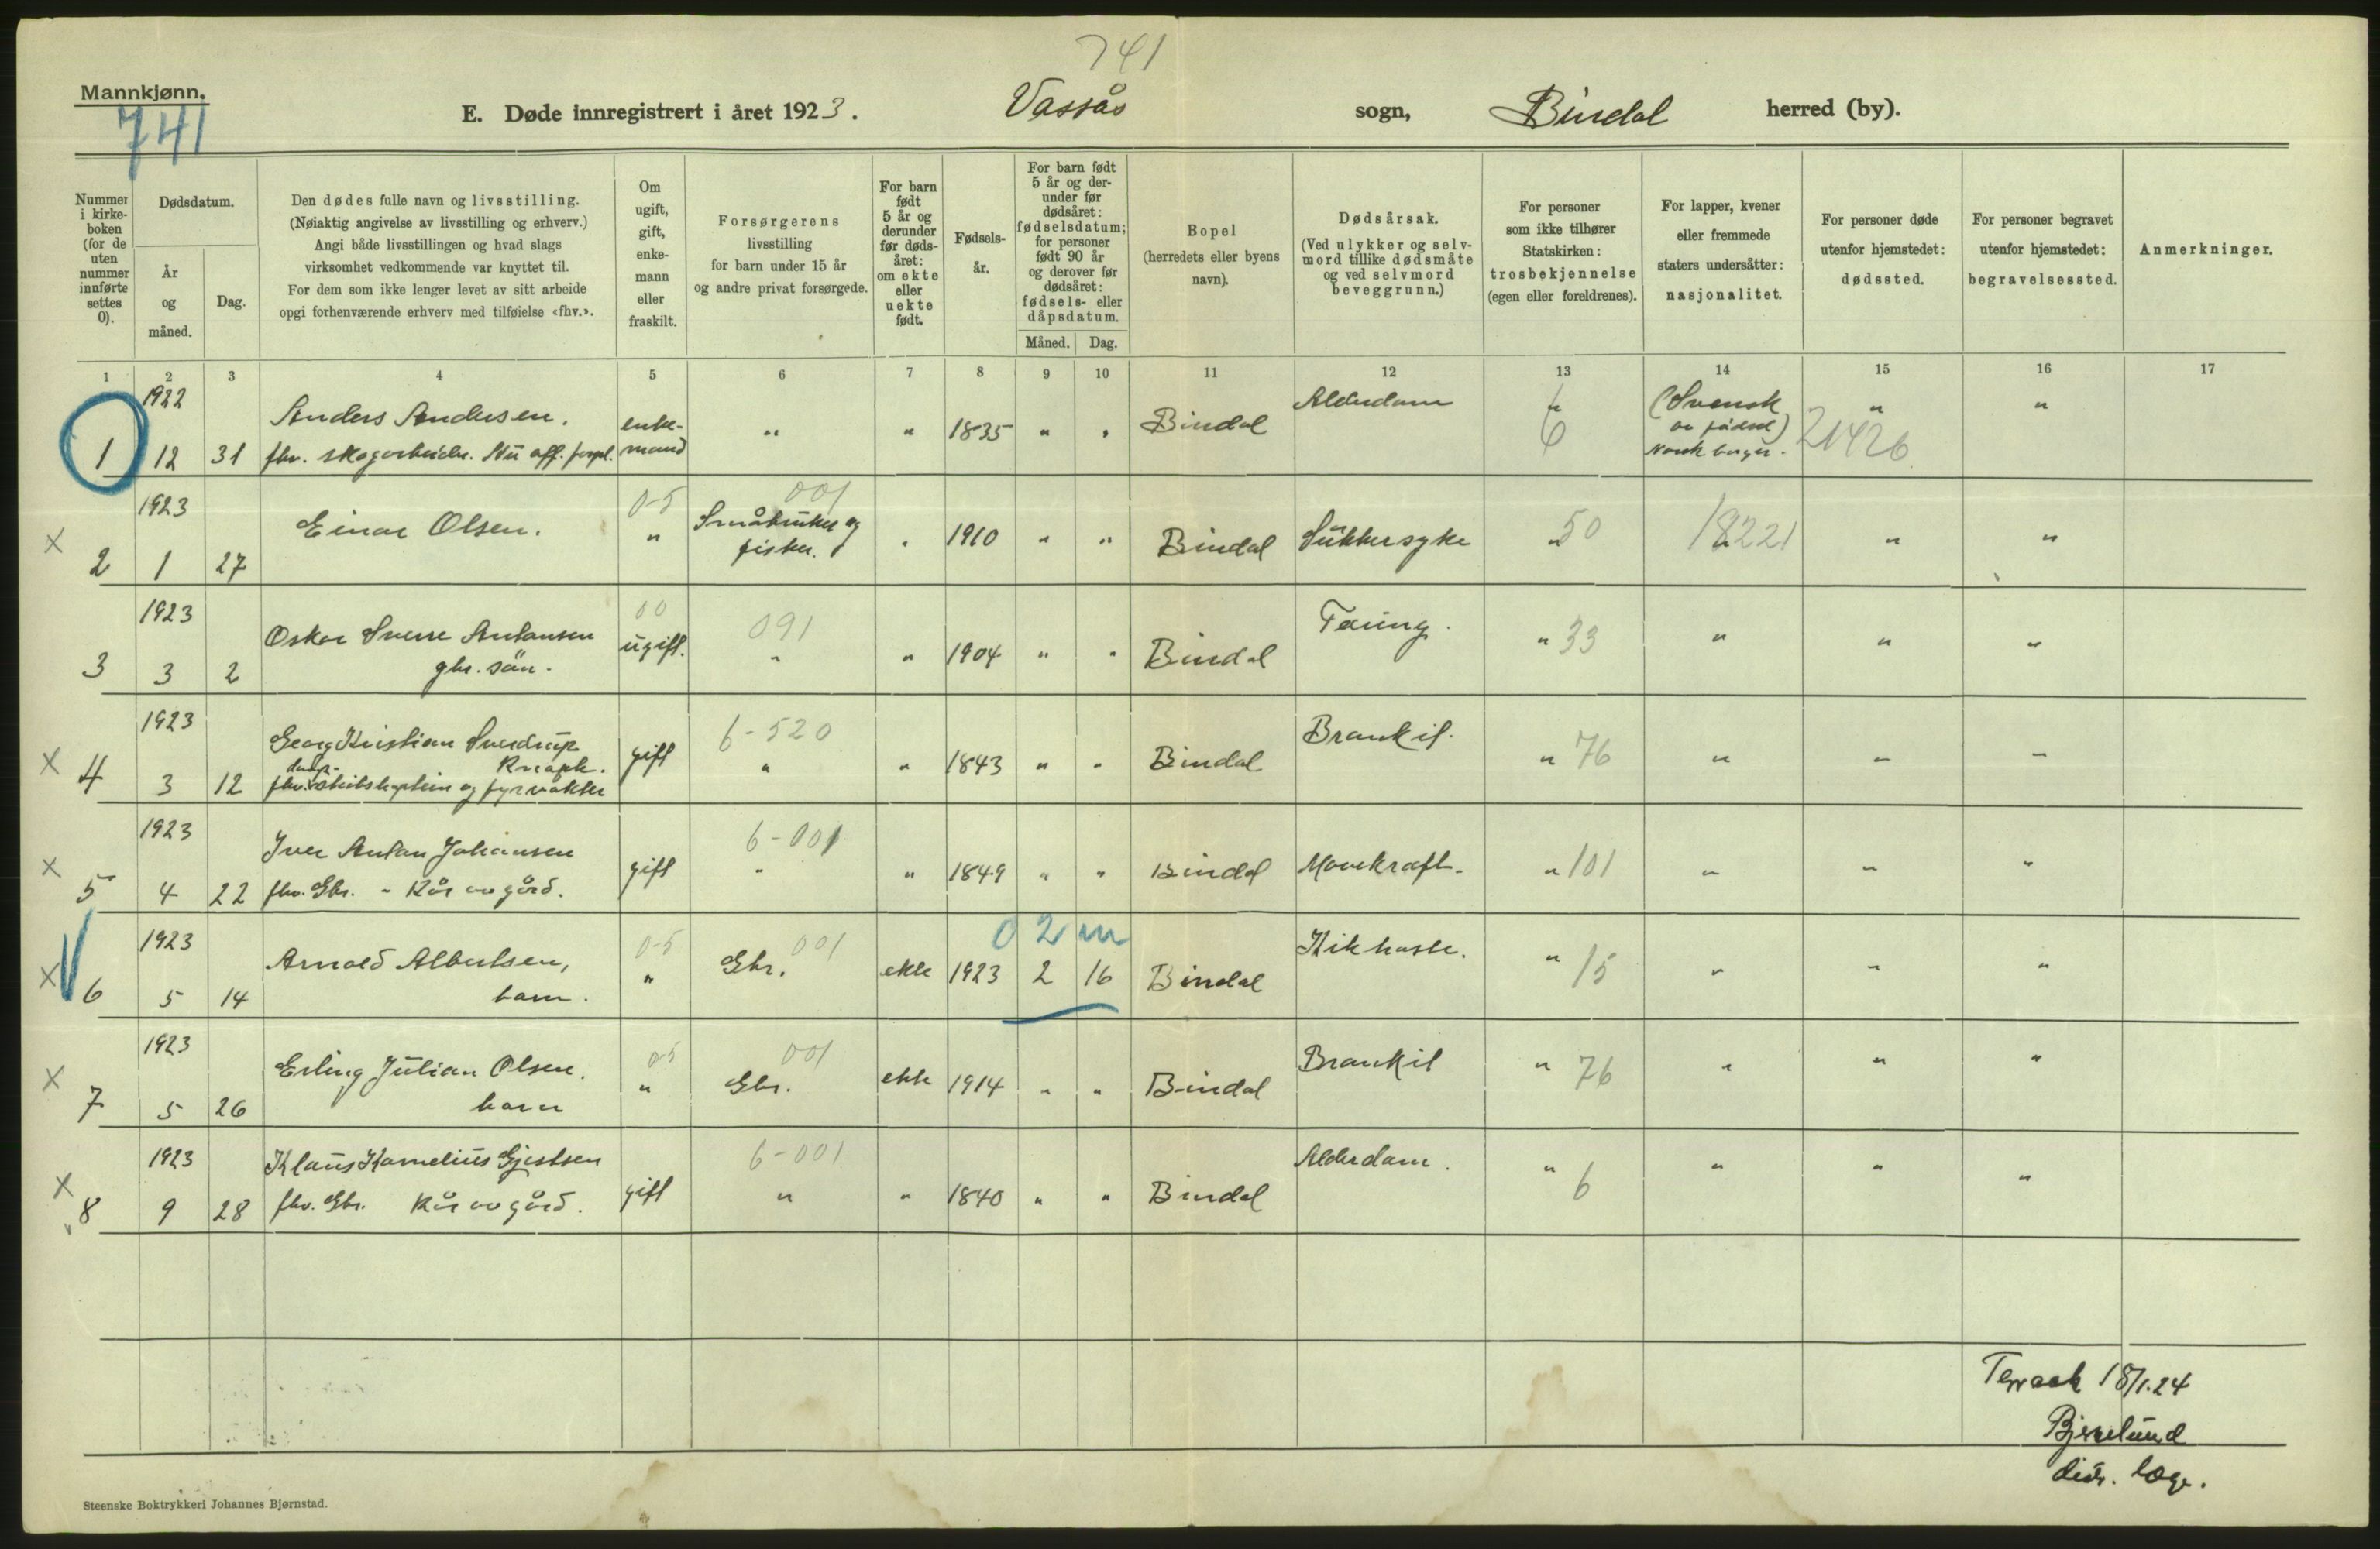 741
Mannkjønn.
741
E. Døde innregistrert i året 1923. Vassås sogn, Bindal herred (by).
Nummer i kirke-boken (for de uten nummer innførte settes 0).
Dødsdatum.
År og måned.
Dag.
Den dødes fulle navn og livsstilling.
(Nøiaktig angivelse av livsstilling og erhverv.)
Angi både livsstillingen og hvad slags
virksomhet vedkommende var knyttet til.
For dem som ikke lenger levet av sitt arbeide
opgi forhenværende erhverv med tilføielse «fhv.».
Om ugift, gift, enke-mann eller fraskilt.
Forsørgerens
livsstilling
for barn under 15 år
og andre privat forsørgede.
For barn født 5 år og derunder før døds-året: om ekte eller uekte født.
Fødsels-år.
For barn født 5 år og der-under før dødsåret: fødselsdatum; for personer født 90 år og derover før dødsåret: fødsels- eller dåpsdatum.
Måned. Dag.
Bopel
(herredets eller byens
navn).
Dødsårsak.
(Ved ulykker og selv-
mord tillike dødsmåte
og ved selvmord
beveggrunn.)
For personer
som ikke tilhører
Statskirken:
trosbekjennelse
(egen eller foreldrenes).
For lapper, kvener
eller fremmede
staters undersåtter:
nasjonalitet.
For personer døde
utenfor hjemstedet:
dødssted.
For personer begravet
utenfor hjemstedet:
begravelsessted.
Anmerkninger.
1 2 3 4 5 6 7 8 9 10 11 12 13 14 15 16 17
1922 Anders Andersen. enke- " " 1835 " " Bindal Alderdom " 6 (Svensk " "
av fødsel) 21426
1 12 31 fhv. skogarbeider. mand Norsk borger.
1923 0-5 001
Einar Olsen. " Småbruker og
fisker. " 1910 " " Bindal Sukkersyke " 50 18221 " "
x 2 1 27
1923 00 091
Oskar Sverre Antonsen ugift. " " 1904 " " Bindal Tæring. " 33 " " "
3 3 2 gbr. sön.
1923 6-520
Georg Kristian Sverdrup
Knoph. gift " " 1843 " " Bindal Bronkit. " 76 " " "
x 4 3 12 fhv. skibskaptein og fyrvokter
1923 6-001
Iver Antan Johansen gift " " 1849 " " Bindal Marekraft. " 101 " " "
x 5 4 22 fhv. Gbr. - Kår av gård.
1923 0-5 001 0 2 m
Arnold Albertsen, " Gbr. ekte 1923 2 16 Bindal Kikhoste. " 15 " " "
x 6 5 14 barn.
1923 0-5 001
Erling Julian Olsen. " Gbr. ekte 1914 " " Bindal Bronkit " 76 " " "
x 7 5 26 barn
1923 6-001
Klaus Kornelius Gjestsen gift " " 1840 " " Bindal Alderdom. " 6 " " "
x 8 9 28 fhv. Gbr. Kår av gård.
Terraak 18/1.24
Bjerelund
distr. læge.
Steenske Boktrykkeri Johannes Bjørnstad.